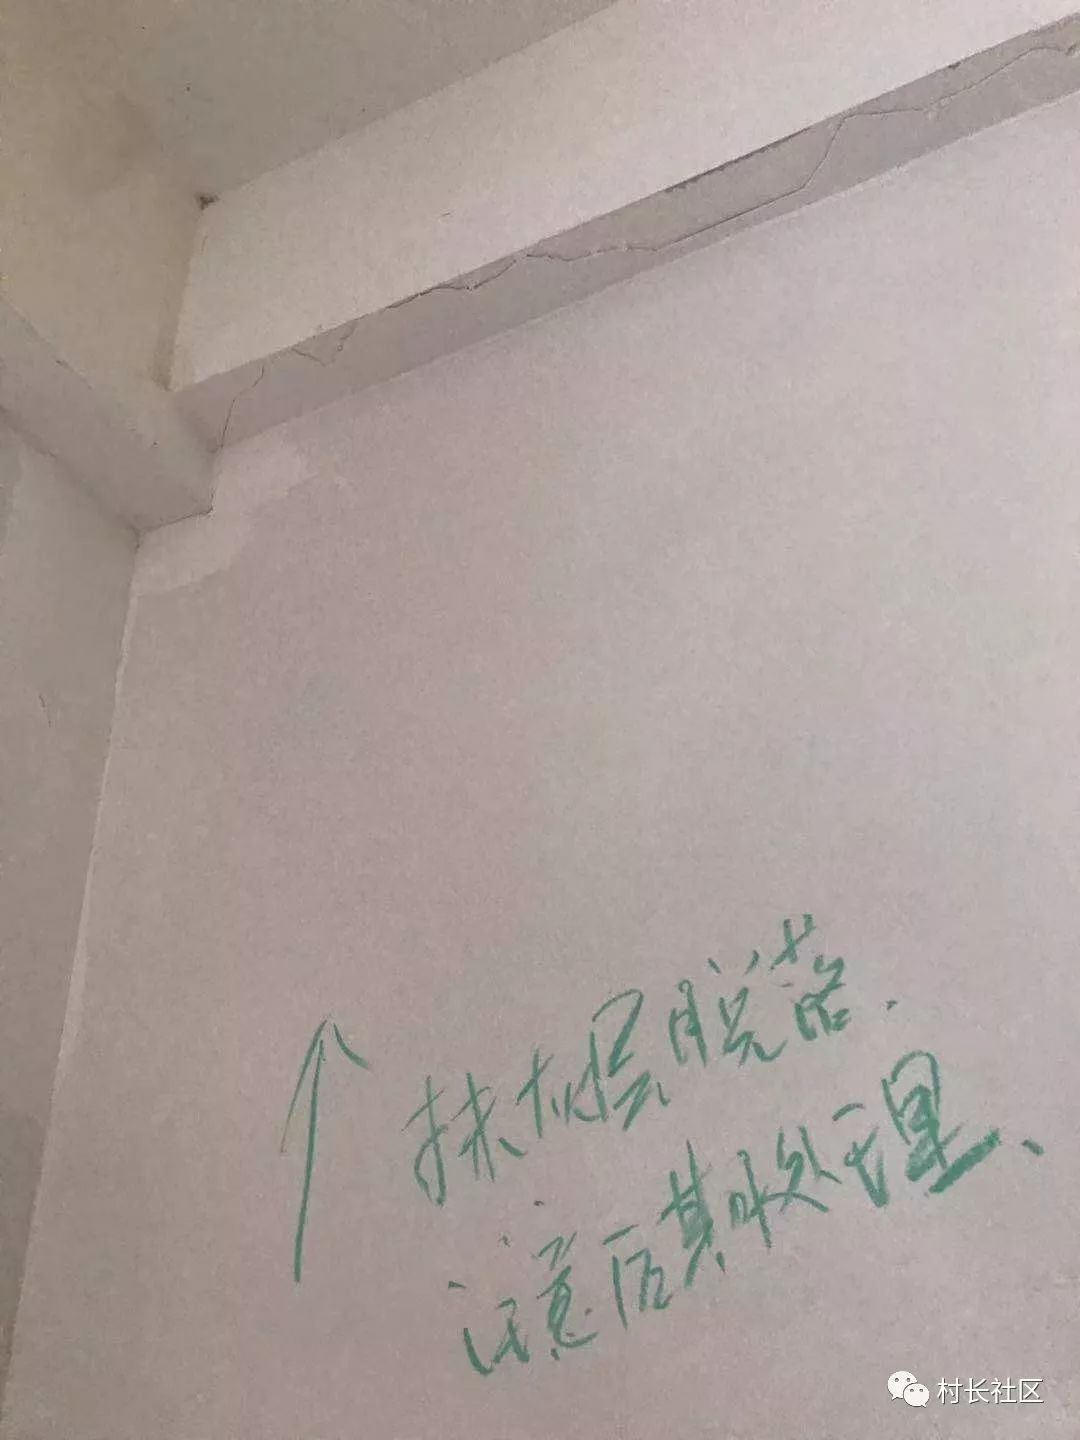 抹灰层脱落.
注意后期处理、
村长社区